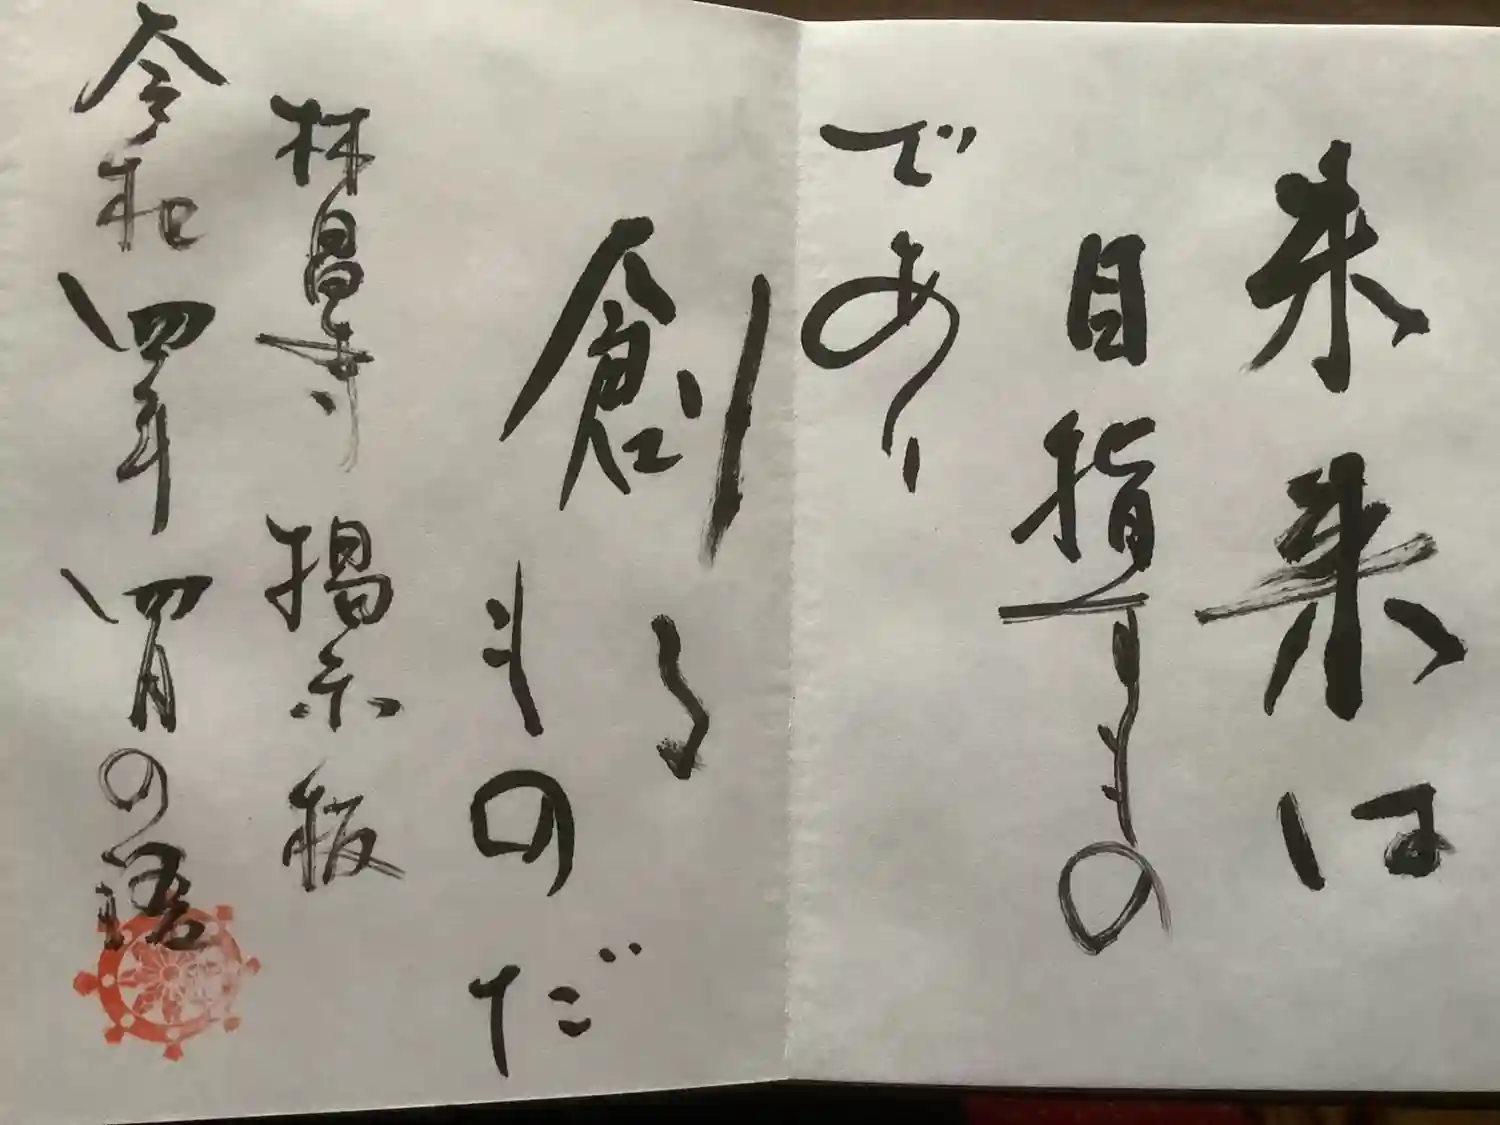 未来は
目指すもの
であり
創る
ものだ
林昌寺 掲示板
令和四年 四月の語